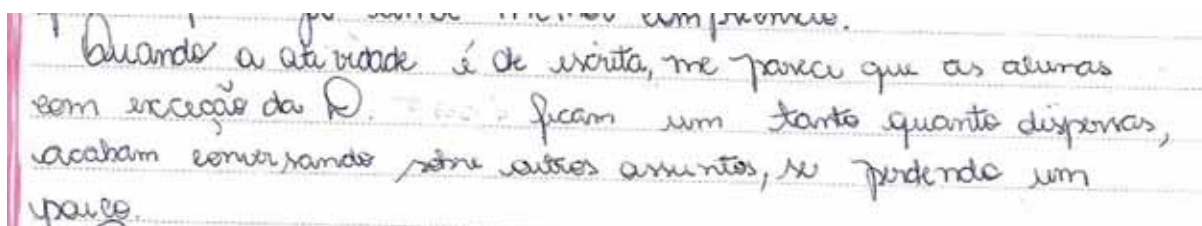 melhor compreensão.
Quando a atividade é de escrita, me parece que as alunas
com exceção da D. ficam um tanto quanto dispersas,
acabam conversando sobre outros assuntos, se perdendo um
pouco.